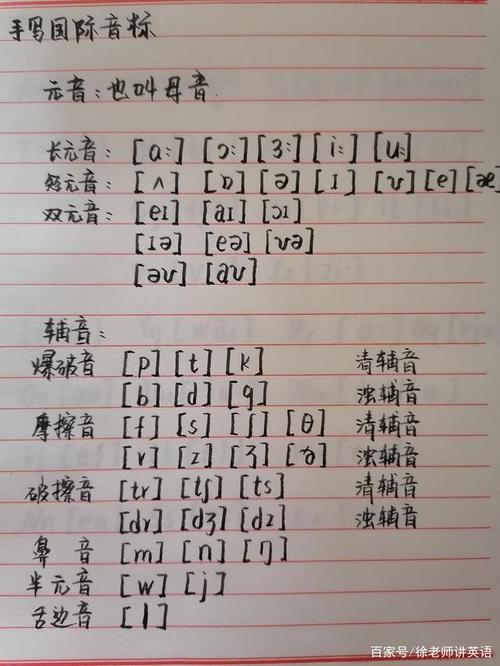 手写国际音标
元音：也叫母音.
长元音：[ɑː] [ɔː] [ɜː] [iː] [uː]
短元音：[ʌ] [ɒ] [ə] [ɪ] [ʊ] [e] [æ]
双元音：[eɪ] [aɪ] [ɔɪ]
[ɪə] [eə] [ʊə]
[əʊ] [aʊ]
辅音：
爆破音 [p] [t] [k] 清辅音
[b] [d] [g] 浊辅音
摩擦音 [f] [s] [ʃ] [θ] 清辅音
[v] [z] [ʒ] [ð] 浊辅音
破擦音 [tr] [tʃ] [ts] 清辅音
[dr] [dʒ] [dz] 浊辅音
鼻 音 [m] [n] [ŋ]
半元音 [w] [j]
舌边音 [l]
百家号/徐老师讲英语